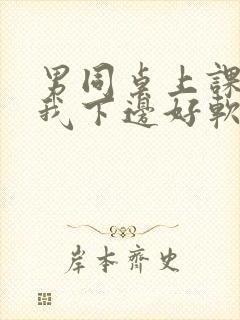 男同桌上課
我下邊好軟
岸本齊史